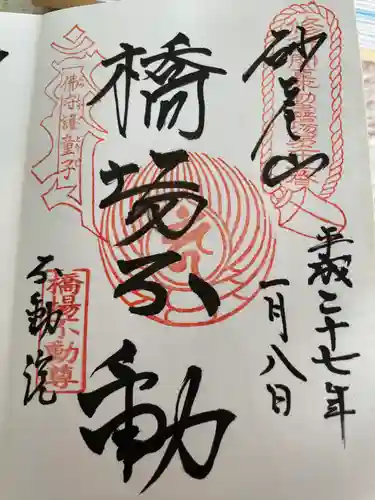 砂尾山
平成二十七年
一月八日
橋場不動
不動院
佛守護童子
橋場不動尊